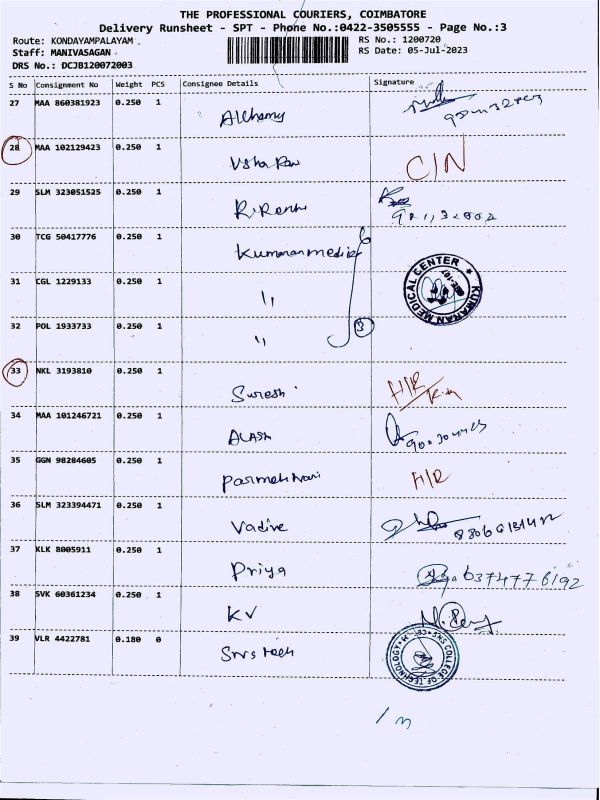 THE PROFESSIONAL COURIERS, COIMBATORE
Delivery Runsheet - SPT - Phone No.:0422-3505555 - Page No.:3
Route: KONDAYAMPALAYAM
RS No.: 1200720
Staff: MANIVASAGAN
RS Date: 05-Jul-2023
DRS No.: DCJB120072003
S No Consignment No Weight PCS Consignee Details Signature
27 MAA 860381923 0.250 1
Alchemy
28 MAA 102129423 0.250 1
C/N
29 SLM 323051525 0.250 1
30 TCG 50417776 0.250 1
KUMARAN MEDICAL CENTER
31 CGL 1229133 0.250 1
"
32 POL 1933733 0.250 1
"
3
33 NKL 3193810 0.250 1
Suresh
34 MAA 101246721 0.250 1
35 GGN 98284605 0.250 1
36 SLM 323394471 0.250 1
37 KLK 8005911 0.250 1
Priya 6374776192
38 SVK 60361234 0.250 1
KV
39 VLR 4422781 0.180 0
SNS COLLEGE OF TECHNOLOGY